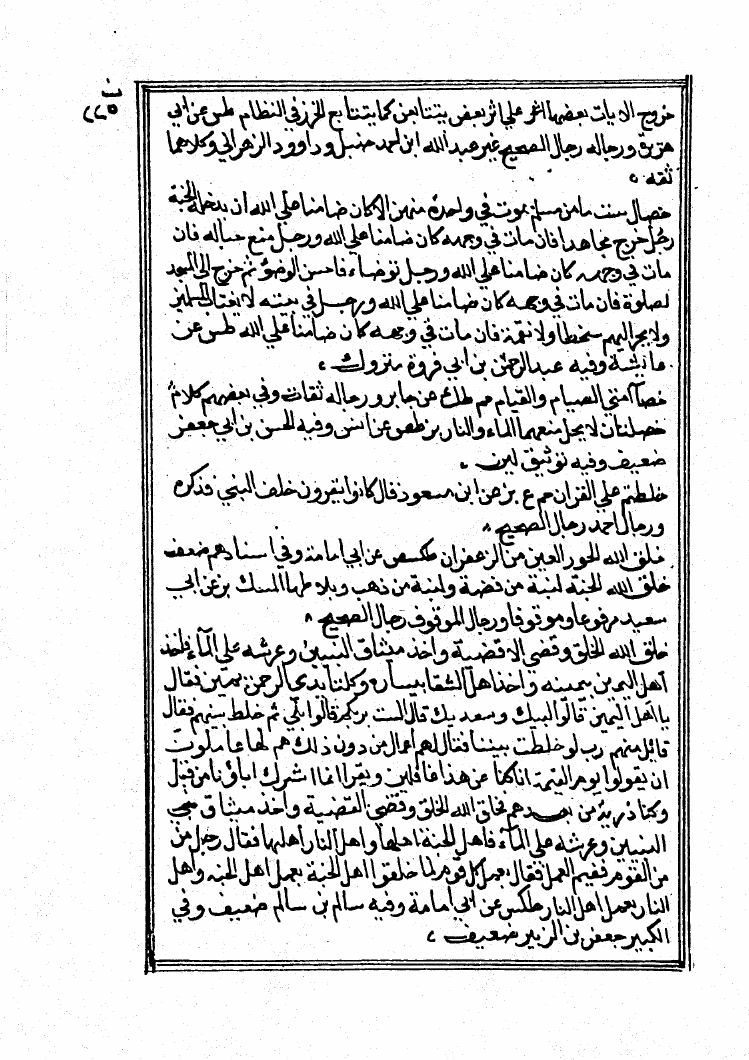 ن
٢٢٥
خروج الايات بعضها اثر علي اثر بعض يتتابعن كما يتتابع الخرز في النظام طس عن ابي
هريرة ورجاله رجال الصحيح غير عبد الله ابن احمد حنبل وداوود الزهراني وكلاهما
ثقه
خصال ست ما من مسلم يموت في واحدة منهن الا كان ضامنا علي الله ان يدخله الجنة
رجل خرج مجاهدا فان مات في وجهه كان ضامنا علي الله ورجل تبع جنازة فان
مات في وجهه كان ضامنا علي الله ورجل توضاء فاحسن الوضؤ ثم خرج الي المسجد
لصلوة فان مات في وجهه كان ضامنا علي الله ورجل في بيته لا يغتاب المسلمين
ولا يجر اليهم سخطا ولا نقمة فان مات في وجهه كان ضامنا علي الله طس عن
عائشة وفيه عبد الرحمن بن ابي فروة متروك
خصآ امتي الصيام والقيام حم طك عن جابر ورجاله ثقات وفي بعضهم كلام
خصلتان لا يحل منعهما الماء والنار بز طص عن انس وفيه الحسن بن ابي جعفر
ضعيف وفيه توثيق لين
خلطتم علي القران حم ع بز عن ابن مسعود قال كانوا يقرون خلف النبي فذكره
ورجال احمد رجال الصحيح
خلق الله الحور العين من الزعفران طكس عن ابي امامة وفي اسنادهم ضعف
خلق الله الجنة لبنة من فضة ولبنة من ذهب وملاطها المسك بز عن ابي
سعيد مرفوعا وموقوفا ورجال الموقوف رجال الصحيح
خلق الله الخلق وقضي الاقضية واخذ ميثاق النبيين وعرشه علي المآء فاخذ
اهل اليمين بيمينه واخذ اهل الشقا بيساره وكلتا يدي الرحمن يمين فقال
يا اهل اليمين قالوا لبيك وسعديك قال الست بربكم قالوا بلي ثم خلط بينهم فقال
قائل منهم رب لو خلطت بيننا فقال لهم اعمال من دون ذلك هم لها عاملون
ان يقولوا يوم القيمة انا كنا عن هذا غافلين ويقرا انما اشرك اباؤنا من قبل
وكنا ذرية من بعدهم فخلق الله الخلق وقضي القضية واخذ ميثاق
النبيين وعرشه علي المآء فاهل الجنة اهلها واهل النار اهلها فقال رجل من
من القوم ففيم العمل فقال يعمل كل قوم لما خلقوا اهل الجنة بعمل اهل الجنه واهل
النار بعمل اهل النار طكس عن ابي امامة وفيه سالم بن سالم ضعيف وفي
الكبير جعفر بن الزبير ضعيف